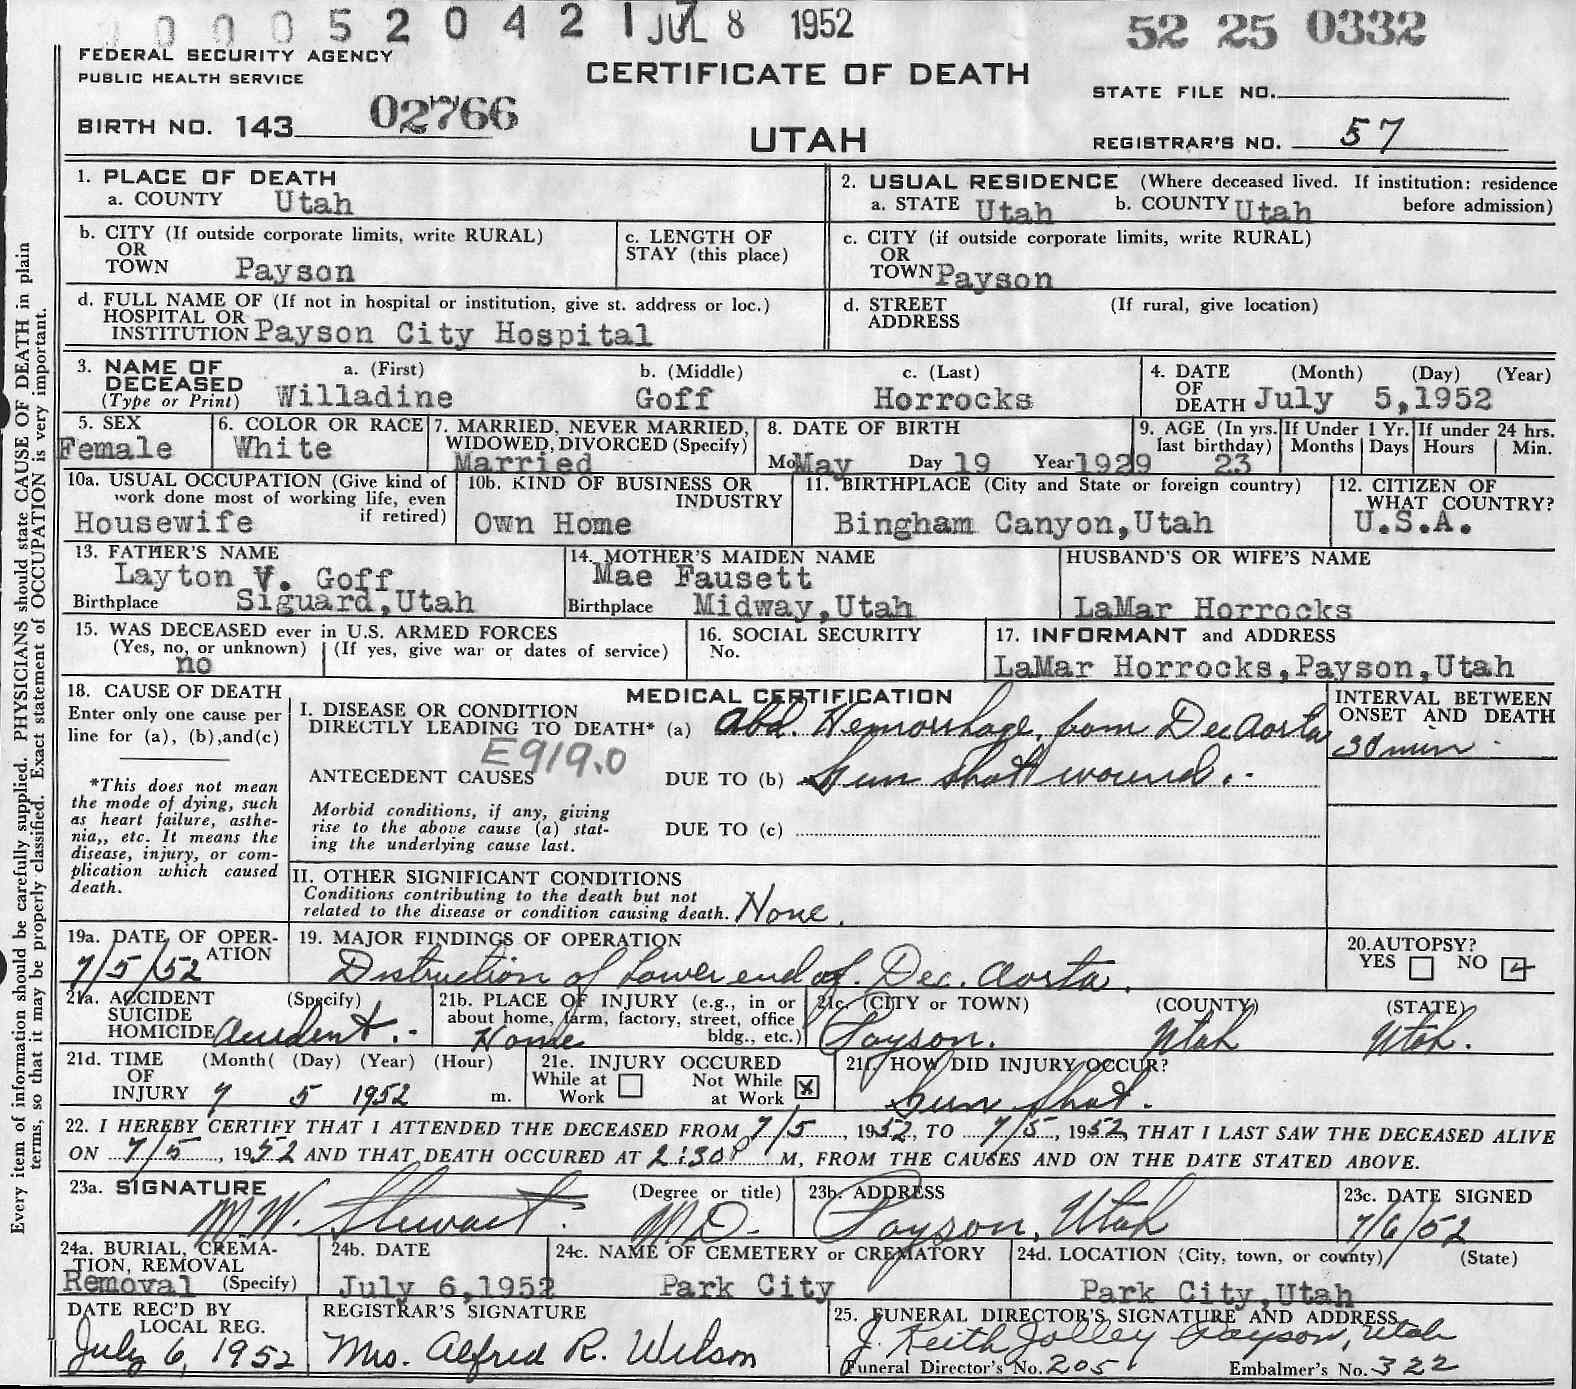 0 0 0 5 2 0 4 2 1 JUL 8 1952 52 25 0332
FEDERAL SECURITY AGENCY
PUBLIC HEALTH SERVICE
CERTIFICATE OF DEATH
STATE FILE NO.
BIRTH NO. 143 02766
UTAH
REGISTRAR'S NO. 57
1. PLACE OF DEATH
a. COUNTY Utah
2. USUAL RESIDENCE (Where deceased lived. If institution: residence
a. STATE Utah b. COUNTY Utah before admission)
b. CITY (If outside corporate limits, write RURAL)
OR
TOWN Payson
c. LENGTH OF
STAY (this place)
c. CITY (if outside corporate limits, write RURAL)
OR
TOWN Payson
d. FULL NAME OF (If not in hospital or institution, give st. address or loc.)
HOSPITAL OR
INSTITUTION Payson City Hospital
d. STREET (If rural, give location)
ADDRESS
3. NAME OF a. (First) b. (Middle) c. (Last)
DECEASED
(Type or Print) Willadine Goff Horrocks
4. DATE (Month) (Day) (Year)
OF
DEATH July 5,1952
5. SEX
Female
6. COLOR OR RACE
White
7. MARRIED, NEVER MARRIED,
WIDOWED, DIVORCED (Specify)
Married
8. DATE OF BIRTH
Mo May Day 19 Year 1929
9. AGE (In yrs.
last birthday)
23
If Under 1 Yr.
Months Days
If under 24 hrs.
Hours Min.
10a. USUAL OCCUPATION (Give kind of
work done most of working life, even
if retired)
Housewife
10b. KIND OF BUSINESS OR
INDUSTRY
Own Home
11. BIRTHPLACE (City and State or foreign country)
Bingham Canyon,Utah
12. CITIZEN OF
WHAT COUNTRY?
U.S.A.
13. FATHER'S NAME
Layton V. Goff
Birthplace Siguard,Utah
14. MOTHER'S MAIDEN NAME
Mae Fausett
Birthplace Midway,Utah
HUSBAND'S OR WIFE'S NAME
LaMar Horrocks
15. WAS DECEASED ever in U.S. ARMED FORCES
(Yes, no, or unknown) (If yes, give war or dates of service)
no
16. SOCIAL SECURITY
No.
17. INFORMANT and ADDRESS
LaMar Horrocks,Payson,Utah
18. CAUSE OF DEATH
Enter only one cause per
line for (a), (b),and(c)
*This does not mean
the mode of dying, such
as heart failure, asthe-
nia,, etc. It means the
disease, injury, or com-
plication which caused
death.
MEDICAL CERTIFICATION
I. DISEASE OR CONDITION
DIRECTLY LEADING TO DEATH* (a) Abd. Hemorrhage, from Dec Aorta
E919.0
ANTECEDENT CAUSES DUE TO (b) Gun shot wound.
Morbid conditions, if any, giving
rise to the above cause (a) stat-
ing the underlying cause last.
DUE TO (c)
INTERVAL BETWEEN
ONSET AND DEATH
30 min
II. OTHER SIGNIFICANT CONDITIONS
Conditions contributing to the death but not
related to the disease or condition causing death. None.
19a. DATE OF OPER-
ATION
7/5/52
19. MAJOR FINDINGS OF OPERATION
Distruction of lower end of. Dec. Aorta.
20.AUTOPSY?
YES NO
21a. ACCIDENT (Specify)
SUICIDE
HOMICIDE Accident.
21b. PLACE OF INJURY (e.g., in or
about home, farm, factory, street, office
bldg., etc.)
Home
21c. (CITY or TOWN) (COUNTY) (STATE)
Payson. Utah Utah.
21d. TIME (Month( (Day) (Year) (Hour)
OF
INJURY 7 5 1952 m.
21e. INJURY OCCURED
While at Work Not While at Work X
21f. HOW DID INJURY OCCUR?
Gun Shot.
22. I HEREBY CERTIFY THAT I ATTENDED THE DECEASED FROM 7/5, 1952, TO 7/5, 1952, THAT I LAST SAW THE DECEASED ALIVE
ON 7/5, 1952 AND THAT DEATH OCCURED AT 2:30P M, FROM THE CAUSES AND ON THE DATE STATED ABOVE.
23a. SIGNATURE (Degree or title)
M.W. Stewart. M.D.
23b. ADDRESS
Payson, Utah
23c. DATE SIGNED
7/6/52
24a. BURIAL, CREMA-
TION, REMOVAL
(Specify)
Removal
24b. DATE
July 6,1952
24c. NAME OF CEMETERY or CREMATORY
Park City
24d. LOCATION (City, town, or county) (State)
Park City,Utah
DATE REC'D BY
LOCAL REG.
July 6, 1952
REGISTRAR'S SIGNATURE
Mrs. Alfred R. Wilson
25. FUNERAL DIRECTOR'S SIGNATURE AND ADDRESS
J. Keith Jolley Payson, Utah
Funeral Director's No. 205 Embalmer's No. 322
Every item of information should be carefully supplied. PHYSICIANS should state CAUSE OF DEATH in plain
terms, so that it may be properly classified. Exact statement of OCCUPATION is very important.